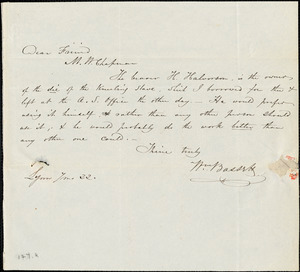 Dear Friend
M. W. Chapman
The bearer H. Halvorson, is the owner
of the die of the Kneeling Slave, which I borrowed for the &
left at the A. S. Office the other day — He would prefer
using it himself rather than any other person should
use it; & he would probably do the work better than
any other one could. —
Thine truly
Wm Bassett
Lynn 22.